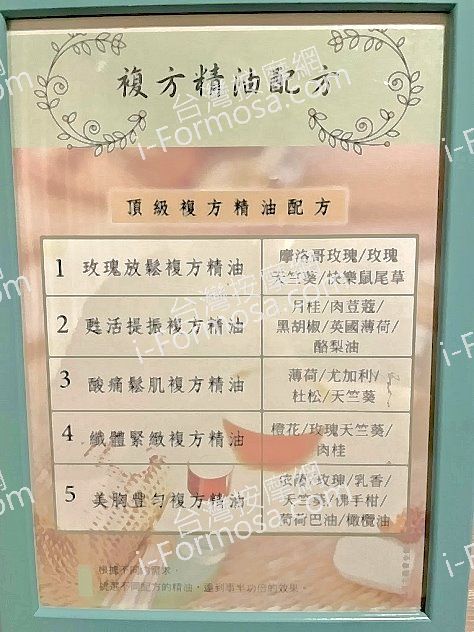 複方精油配方
頂級複方精油配方
1 玫瑰放鬆複方精油
摩洛哥玫瑰/玫瑰
天竺葵/快樂鼠尾草
2 甦活提振複方精油
月桂/肉荳蔻/
黑胡椒/英國薄荷/
酪梨油
3 酸痛鬆肌複方精油
薄荷/尤加利/
杜松/天竺葵
4 纖體緊緻複方精油
橙花/玫瑰天竺葵/
肉桂
5 美胸豐勻複方精油
玫瑰/乳香/
天竺葵/佛手柑/
荷荷巴油/橄欖油
根據不同的需求，
挑選不同配方的精油，達到事半功倍的效果。
台灣按摩網
i-Formosa.com
台灣按摩網
i-Formosa.com
台灣按摩網
i-Formosa.com